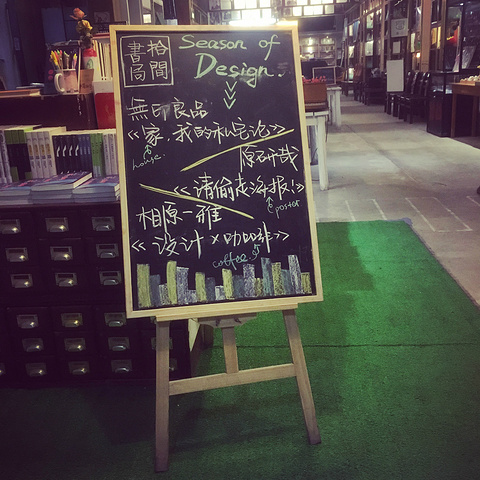 拾間
書局
Season of
Design.
無印良品
《家,我的私宅论》
house.
原研哉
《请偷走海报!》
poster
相原一雅
《设计×咖啡》
coffee